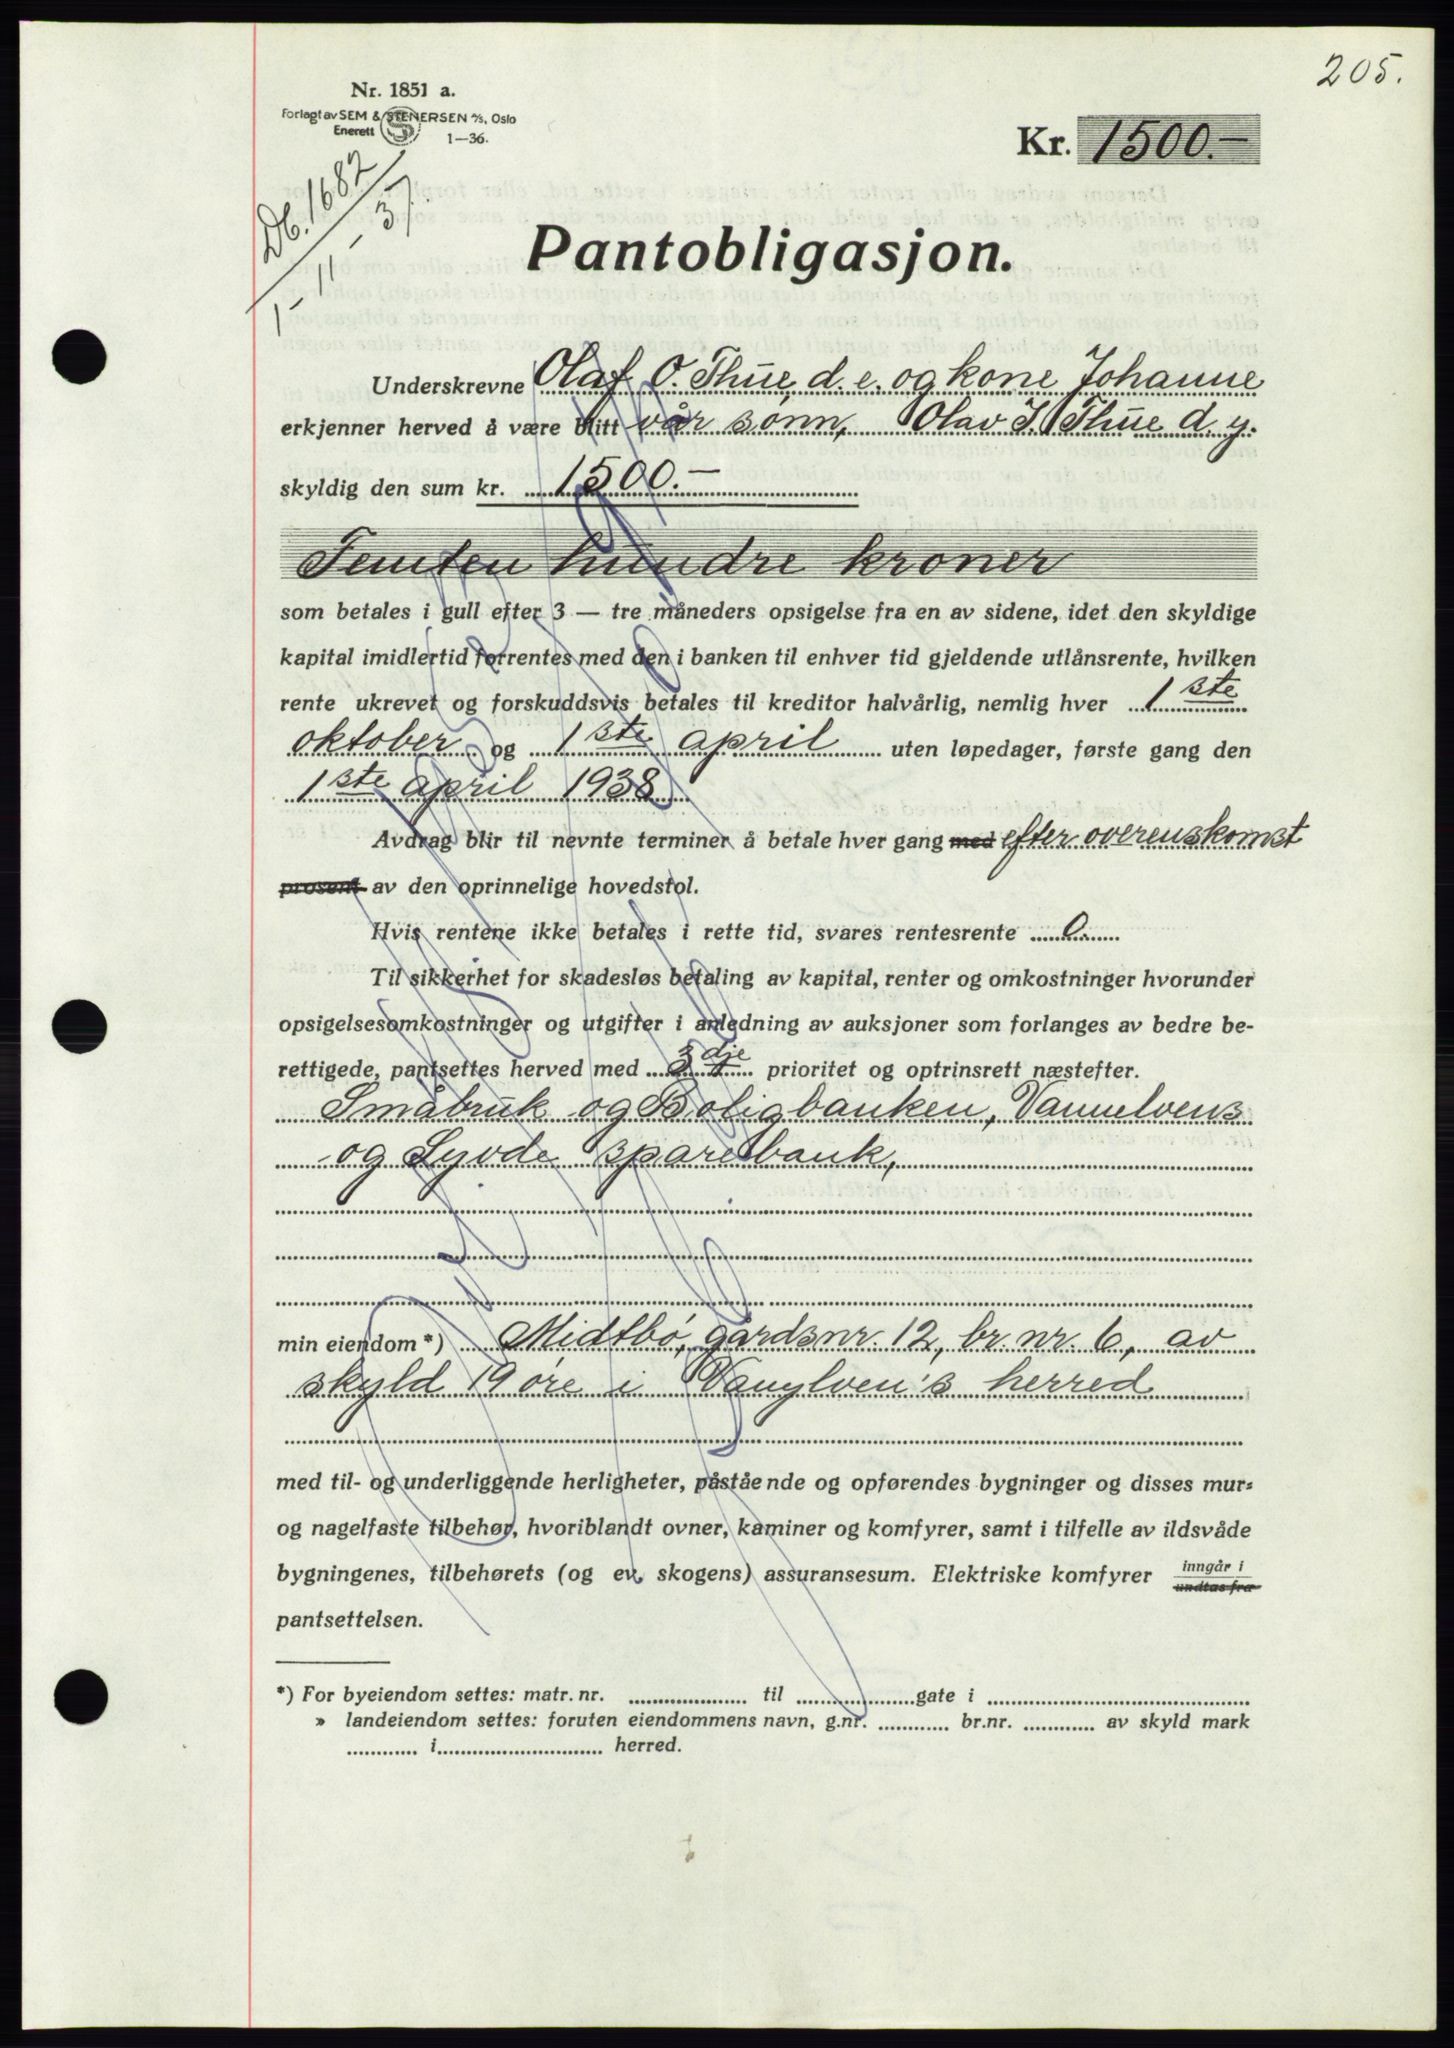 205.
Nr. 1851 a.
Forlagt av SEM & STENERSEN A/S, Oslo
Enerett
1–36.
Kr. 1500.—
Db. 1682
1 - 11 - 37.
Pantobligasjon.
Underskrevne Olaf O. Thue, d. e. og kone Johanne
erkjenner herved å være blitt vår sønn, Olav J. Thue d. y.
skyldig den sum kr. 1500.—
Femten hundre kroner
som betales i gull efter 3 — tre måneders opsigelse fra en av sidene, idet den skyldige
kapital imidlertid forrentes med den i banken til enhver tid gjeldende utlånsrente, hvilken
rente ukrevet og forskuddsvis betales til kreditor halvårlig, nemlig hver 1ste
oktober og 1ste april uten løpedager, første gang den
1ste april 1938
Avdrag blir til nevnte terminer å betale hver gang med efter overenskomst
prosent av den oprinnelige hovedstol.
Hvis rentene ikke betales i rette tid, svares rentesrente 0.
Til sikkerhet for skadesløs betaling av kapital, renter og omkostninger hvorunder
opsigelsesomkostninger og utgifter i anledning av auksjoner som forlanges av bedre be-
rettigede, pantsettes herved med 3dje prioritet og optrinsrett næstefter.
Småbruk og Boligbanken, Vannelvens
og Syvde sparebank,
min eiendom *) Midtbø, gårdsnr. 12, br. nr. 6, av
skyld 19 øre i Vanylven's herred
med til- og underliggende herligheter, påstående og opførendes bygninger og disses mur-
og nagelfaste tilbehør, hvoriblandt ovner, kaminer og komfyrer, samt i tilfelle av ildsvåde
bygningenes, tilbehørets (og ev. skogens) assuransesum. Elektriske komfyrer inngår i
undtas fra
pantsettelsen.
*) For byeiendom settes: matr. nr. .................... til ....................gate i ....................
» landeiendom settes: foruten eiendommens navn, g.nr. ............ br.nr. ............ av skyld mark
............ i............................ herred.